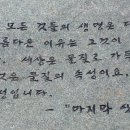 모든 것들의 생명은 다
름다운 이유는 그것이
세상은 물질로 가득
것은 물질의 속성이요.
성입니다.
- "마지막